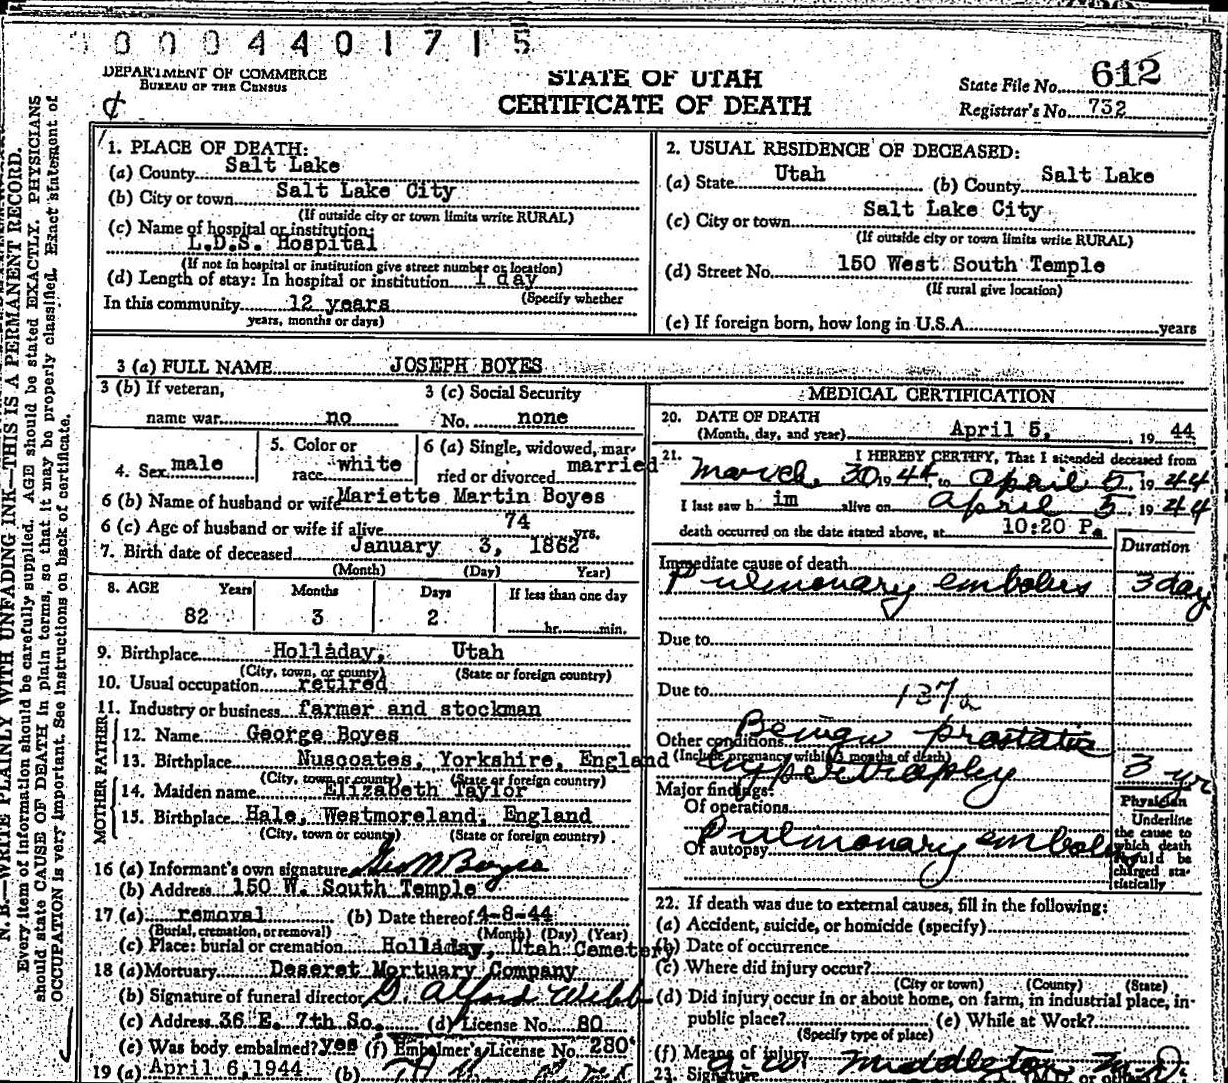 0004401715
DEPARTMENT OF COMMERCE
BUREAU OF THE CENSUS
STATE OF UTAH
CERTIFICATE OF DEATH
State File No. 612
Registrar's No. 732
N. B.—WRITE PLAINLY WITH UNFADING INK—THIS IS A PERMANENT RECORD.
Every item of information should be carefully supplied. AGE should be stated EXACTLY. PHYSICIANS
should state CAUSE OF DEATH in plain terms, so that it may be properly classified. Exact statement of
OCCUPATION is very important. See instructions on back of certificate.
1. PLACE OF DEATH:
(a) County Salt Lake
(b) City or town Salt Lake City
(If outside city or town limits write RURAL)
(c) Name of hospital or institution:
L.D.S. Hospital
(If not in hospital or institution give street number or location)
(d) Length of stay: In hospital or institution 1 day
(Specify whether
In this community 12 years
years, months or days)
2. USUAL RESIDENCE OF DECEASED:
(a) State Utah (b) County Salt Lake
(c) City or town Salt Lake City
(If outside city or town limits write RURAL)
(d) Street No. 150 West South Temple
(If rural give location)
(e) If foreign born, how long in U.S.A. years
3 (a) FULL NAME JOSEPH BOYES
3 (b) If veteran,
name war no
3 (c) Social Security
No. none
4. Sex male
5. Color or
race white
6 (a) Single, widowed, mar-
ried or divorced married
6 (b) Name of husband or wife Mariette Martin Boyes
6 (c) Age of husband or wife if alive 74 yrs.
7. Birth date of deceased January 3, 1862
(Month) (Day) Year)
8. AGE Years Months Days If less than one day
82 3 2 hr. min.
9. Birthplace Holladay, Utah
(City, town, or county) (State or foreign country)
10. Usual occupation retired
11. Industry or business farmer and stockman
FATHER
12. Name George Boyes
13. Birthplace Nuscoates, Yorkshire, England
(City, town or county) (State or foreign country)
MOTHER
14. Maiden name Elizabeth Taylor
15. Birthplace Hale, Westmoreland, England
(City, town or county) (State or foreign country)
16 (a) Informant's own signature Geo M Boyes
(b) Address 150 W. South Temple
17 (a) removal (b) Date thereof 4-8-44
(Burial, cremation, or removal) (Month) (Day) (Year)
(c) Place: burial or cremation Holladay, Utah Cemetery
18 (a) Mortuary Deseret Mortuary Company
(b) Signature of funeral director D. Alford Webb
(c) Address 36 E. 7th So. (d) License No. 80
(e) Was body embalmed? yes (f) Embalmer's License No. 280
19 (a) April 6, 1944 (b)
MEDICAL CERTIFICATION
20. DATE OF DEATH
(Month, day, and year) April 5, 19 44
21. I HEREBY CERTIFY, That I attended deceased from
March 30 19 44 to April 5, 19 44
I last saw h im alive on April 5, 19 44
death occurred on the date stated above, at 10:20 P.
Duration
Immediate cause of death
Pulmonary embolus 3 day
Due to
Due to 137a
Other conditions Benign prostatic
(Include pregnancy within 3 months of death)
hypertrophy 3 yr
Major findings:
Of operations
Of autopsy Pulmonary embolus
Physician
Underline
the cause to
which death
should be
charged sta-
tistically
22. If death was due to external causes, fill in the following:
(a) Accident, suicide, or homicide (specify)
(b) Date of occurrence
(c) Where did injury occur?
(City or town) (County) (State)
(d) Did injury occur in or about home, on farm, in industrial place, in-
public place? (e) While at Work?
(Specify type of place)
(f) Means of injury
23. Signature Middleton M.D.